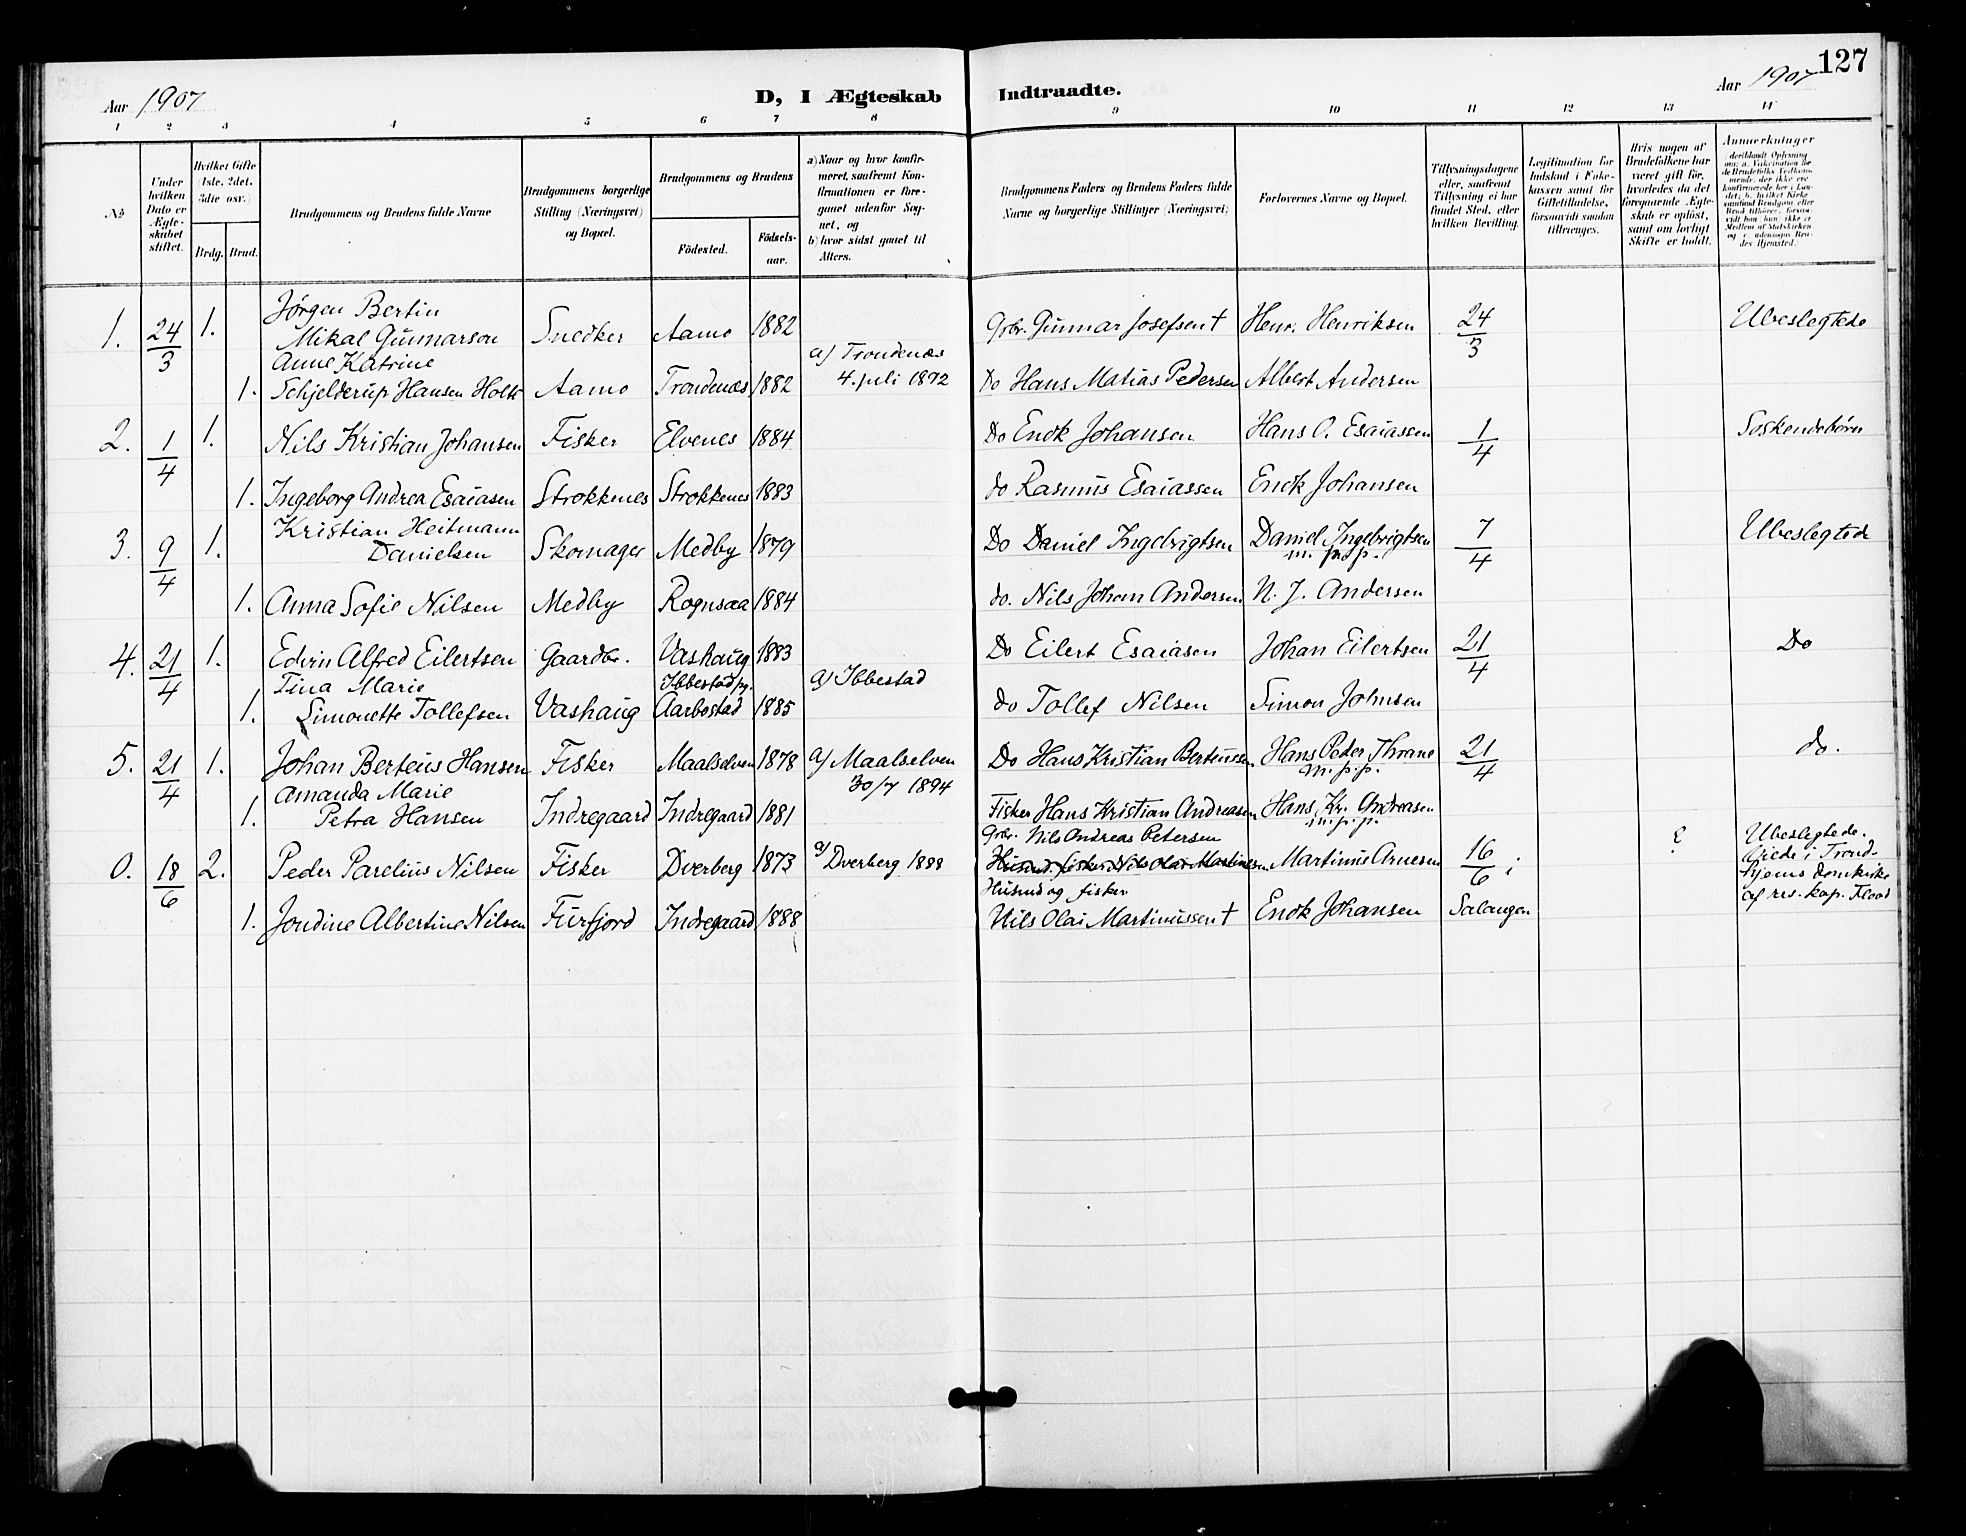 127
Aar 1907 D, I Ægteskab Indtraadte. Aar 1907
1 2 3 4 5 6 7 8 9 10 11 12 13 14
No
Under hvilken Dato er Ægteskabet stiftet.
Hvilket Gifte (1ste, 2det, 3die osv.)
Brdg. Brud.
Brudgommens og Brudens fulde Navne
Brudgommens borgerlige Stilling (Næringsvei) og Bopæl.
Brudgommens og Brudens
Födested. Födselsaar.
a) Naar og hvor konfirmeret, saafremt Konfirmationen er foregaaet udenfor Sognet, og
b) hvor sidst gaaet til Alters.
Brudgommens Faders og Brudens Faders fulde Navne og borgerlige Stillinger (Næringsvei)
Forlovernes Navne og Bopæl.
Tillysningsdagene eller, saafremt Tillysning ei har fundet Sted, efter hvilken Bevilling.
Legitimation for Indskud i Enkekassen samt for Giftetilladelse, forsaavidt saadan tiltrænges.
Hvis nogen af Brudefolkene har været gift för, hvorledes da det foregaaende Ægteskab er oplöst, samt om lovligt Skifte er holdt.
Anmerkninger
1. 24/3 1. Jørgen Bertin
Mikal Gunnarson Snedker Aamo 1882 Grbr. Gunnar Josefsen † Henr. Henriksen 24/3 Ubeslegtede
Anne Katrine a) Trondenæs
1. Schjelderup Hansen Holte Aamo Trondenæs 1882 4. juli 1872 Do Hans Matias Pedersen Albert Andersen
2. 1/4 1. Nils Kristian Johansen Fisker Elvenes 1884 Do Enok Johansen Hans O. Esaiassen 1/4 Soskendebørn
1. Ingeborg Andrea Esaiasen Strokkenes Strokkenes 1883 do Rasmus Esaiassen Enok Johansen
Kristian Heitmann
3. 9/4 1. Danielsen Skomager Medby 1879 Do Daniel Ingebrigtsen Daniel Ingebrigtsen 7/4 Ubeslegtede
m. p. p.
1. Anna Sofie Nilsen Medby Rognsaa 1884 do. Nils Johan Andersen N. J. Andersen
4. 21/4 1. Edvin Alfred Eilertsen Gaardbr. Vashaug 1883 Do Eilert Esaiasen Johan Eilertsen 21/4 Do
Tina Marie Ibbestad pg. a) Ibbestad
1. Simonette Tollefsen Vashaug Aarbostad 1885 do Tollef Nilsen Simon Johnsen
5. 21/4 1. Johan Berteus Hansen Fisker Maalselven 1878 a) Maalselven Do Hans Kristian Berteussen Hans Peder Thrane 21/4 do.
Amanda Marie 30/7 1894 m. p. p.
1. Petra Hansen Indregaard Indregaard 1881 Fisker Hans Kristian Andreasen Hans Kr. Andreasen
m. p. p.
Grbr. Nils Andreas Petersen
0. 18/6 2. Peder Parelius Nilsen Fisker Dverberg 1873 a) Dverberg 1888 Husmd. fisker Nils Olai Martinussen Martinus Arnesen 16/6 i ? Ubeslegtede.
Viede i Trondhjems domkirke
Husmd og fisker af res. kap. Flood
1. Jondine Albertine Nilsen Furfjord Indregaard 1888 Nils Olai Martinussen † Enok Johansen Salangen